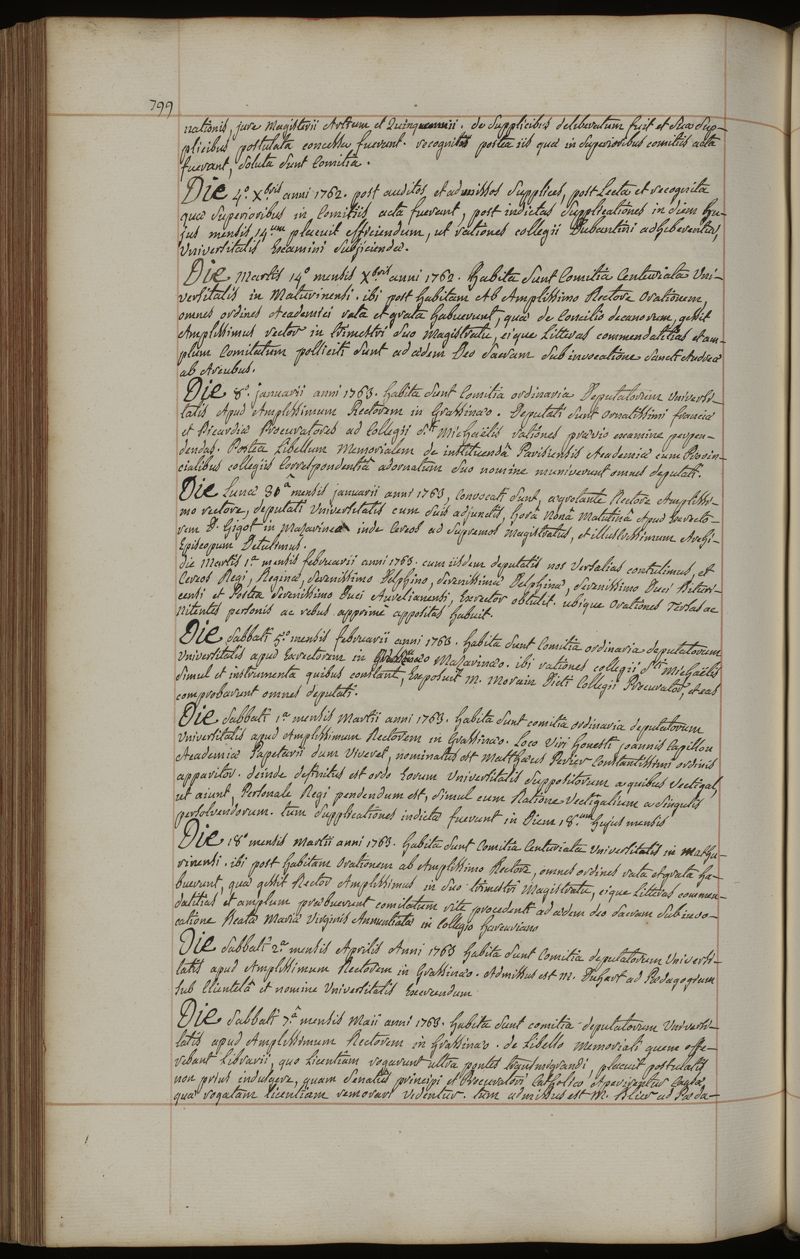 799
nationis, jure Magisterii Artium et Quinquennii. de Supplicibus deliberatum fuit et Sua Sup-
plicibus postulata concessa fuerunt. recognitis postea iis quæ in Superioribus comitiis acta
fuerant, Soluta Sunt Comitia.
Die 4.º Xbris anni 1762. post auditos et admissos Supplices, post Lecta et recognita
quæ Superioribus in Comitiis acta fuerant, post indictas Supplicationes in diem hu-
jus mensis, 14.um placuit efficiendum, ut rationes collegii adhiberentur,
Universitatis Examini Subjiciendæ.
Die Martis 14º mensis Xbris anni 1762. habita Sunt Comitia Centuriata Uni-
versitatis in Maturinensi. ibi post habitam Ab Amplissimo Rectore Orationem,
omnes ordines Academici rata et grata habuerunt, quæ de Concilio decanorum, gessit
Amplissimus rector in trimestri Suo Magistratu, eique Litteras commendatitias et am-
plum Comitatum polliciti Sunt ad ædem Deo Sacram Sub invocatione Sancti Andreæ
ab Arcubus.
Die 8º. januarii anni 1763. habita Sunt Comitia ordinaria Deputatorum Universi-
tatis Apud Amplissimum Rectorem in Grassinæo. Deputati Sunt Ornatissimi franciæ
et Picardiæ Procuratores ad Collegii Sti Michaëlis rationes prævio examine perpen-
dendas. Postea Libellum Memorialem de instituendâ Parisiensis Academiæ cum Provin-
cialibus collegiis Correspondentiâ adornatum Suo nomine muniverunt omnes deputati.
Die Lunæ 30a mensis januarii anni 1763, Convocati Sunt, ægrotante Rectore Amplissi-
mo rectore, deputati Universitatis cum Suis adjunctis, horâ Nonâ Matutinâ Apud Exrecto-
rem D. Gigot in Mazarinæo inde Cereos ad Supremos Magistratus, et illustrissimum Archi-
Episcopum Detulimus.
die Martis 1a mensis februarii anni 1763. cum iisdem deputatis nos Versalias contulimus, et
Cereos Regi, Reginæ, Serenissimo Delphino, Serenissimæ Delphinæ, Serenissimo Duci Bituri-
censi et Postea Serenissimo Duci Aurelianensi, Exrector obtulit. ubique Orationes Tersas ac
Nitentes personis ac rebus apprimè appositas habuit.
Die Sabbati 5.º mensis februarii anni 1763. habita Sunt Comitia ordinaria deputatorum
Universitatis apud Exrectorem in Mazarinæo. ibi rationes collegii Sti Michaëlis
Simul et instrumenta quibus constant, Exposuit M. Morain Dicti Collegii Procurator, et eas
comprobarunt omnes deputati.
Die Sabbati 1a mensis Martii anni 1763. habita Sunt comitia ordinaria deputatorum
Universitatis apud Amplissimum Rectorem in Grassinæo. Loco Viri honesti joannis Capillou
Academiæ Papetarii dum Viveret, nominatus est Matthæus Perier Constantissimi ordinis
apparitor. deinde definitus est ordo Eorum Universitatis Suppositorum a quibus Vectigal,
ut aiunt, Personale Regi pendendum est, Simul cum Ratione Vectigalium a Singulis
persolvendorum. tum Supplicationes indictæ fuerunt in Diem 18.um hujus mensis
Die 18º mensis Martii anni 1763. habita Sunt Comitia Centuriata Universitatis in Mathu-
rinensi. ibi post habitam Orationem ab Amplissimo Rectore, omnes ordines rata et grata ha-
buerunt, quæ gessit Rector Amplissimus in Suo trimestri Magistratu, eique Litteras commen-
datitias et amplum præbuerunt comitatum rite procedenti ad ædem deo Sacram Sub invo-
catione Beatæ Mariæ Virginis Annuntiatæ in Collegio harcuriano
Die Sabbati 2.a mensis Aprilis Anni 1763 habita Sunt Comitia deputatorum Universi-
tatis apud Amplissimum Rectorem in Grassinæo. Admissus est M. Duhart ad Pædagogium
Sub Clientelâ et nomine Universitatis Exercendum
Die Sabbati 7.a mensis Maii anni 1763. habita Sunt comitia deputatorum Universi-
tatis apud Amplissimum Rectorem in Grassinæo. de Libello Memoriali quem offe-
rebant Librarii, quo Licentiam rogarunt ultra pontes transmigrandi, placuit postulatis
non prius indulgere, quam Senatus principi et Procuratori Catholico Aperirentur Causæ,
quæ rogatam licentiam removere Videntur. tum admissus est M. ad Pæda-